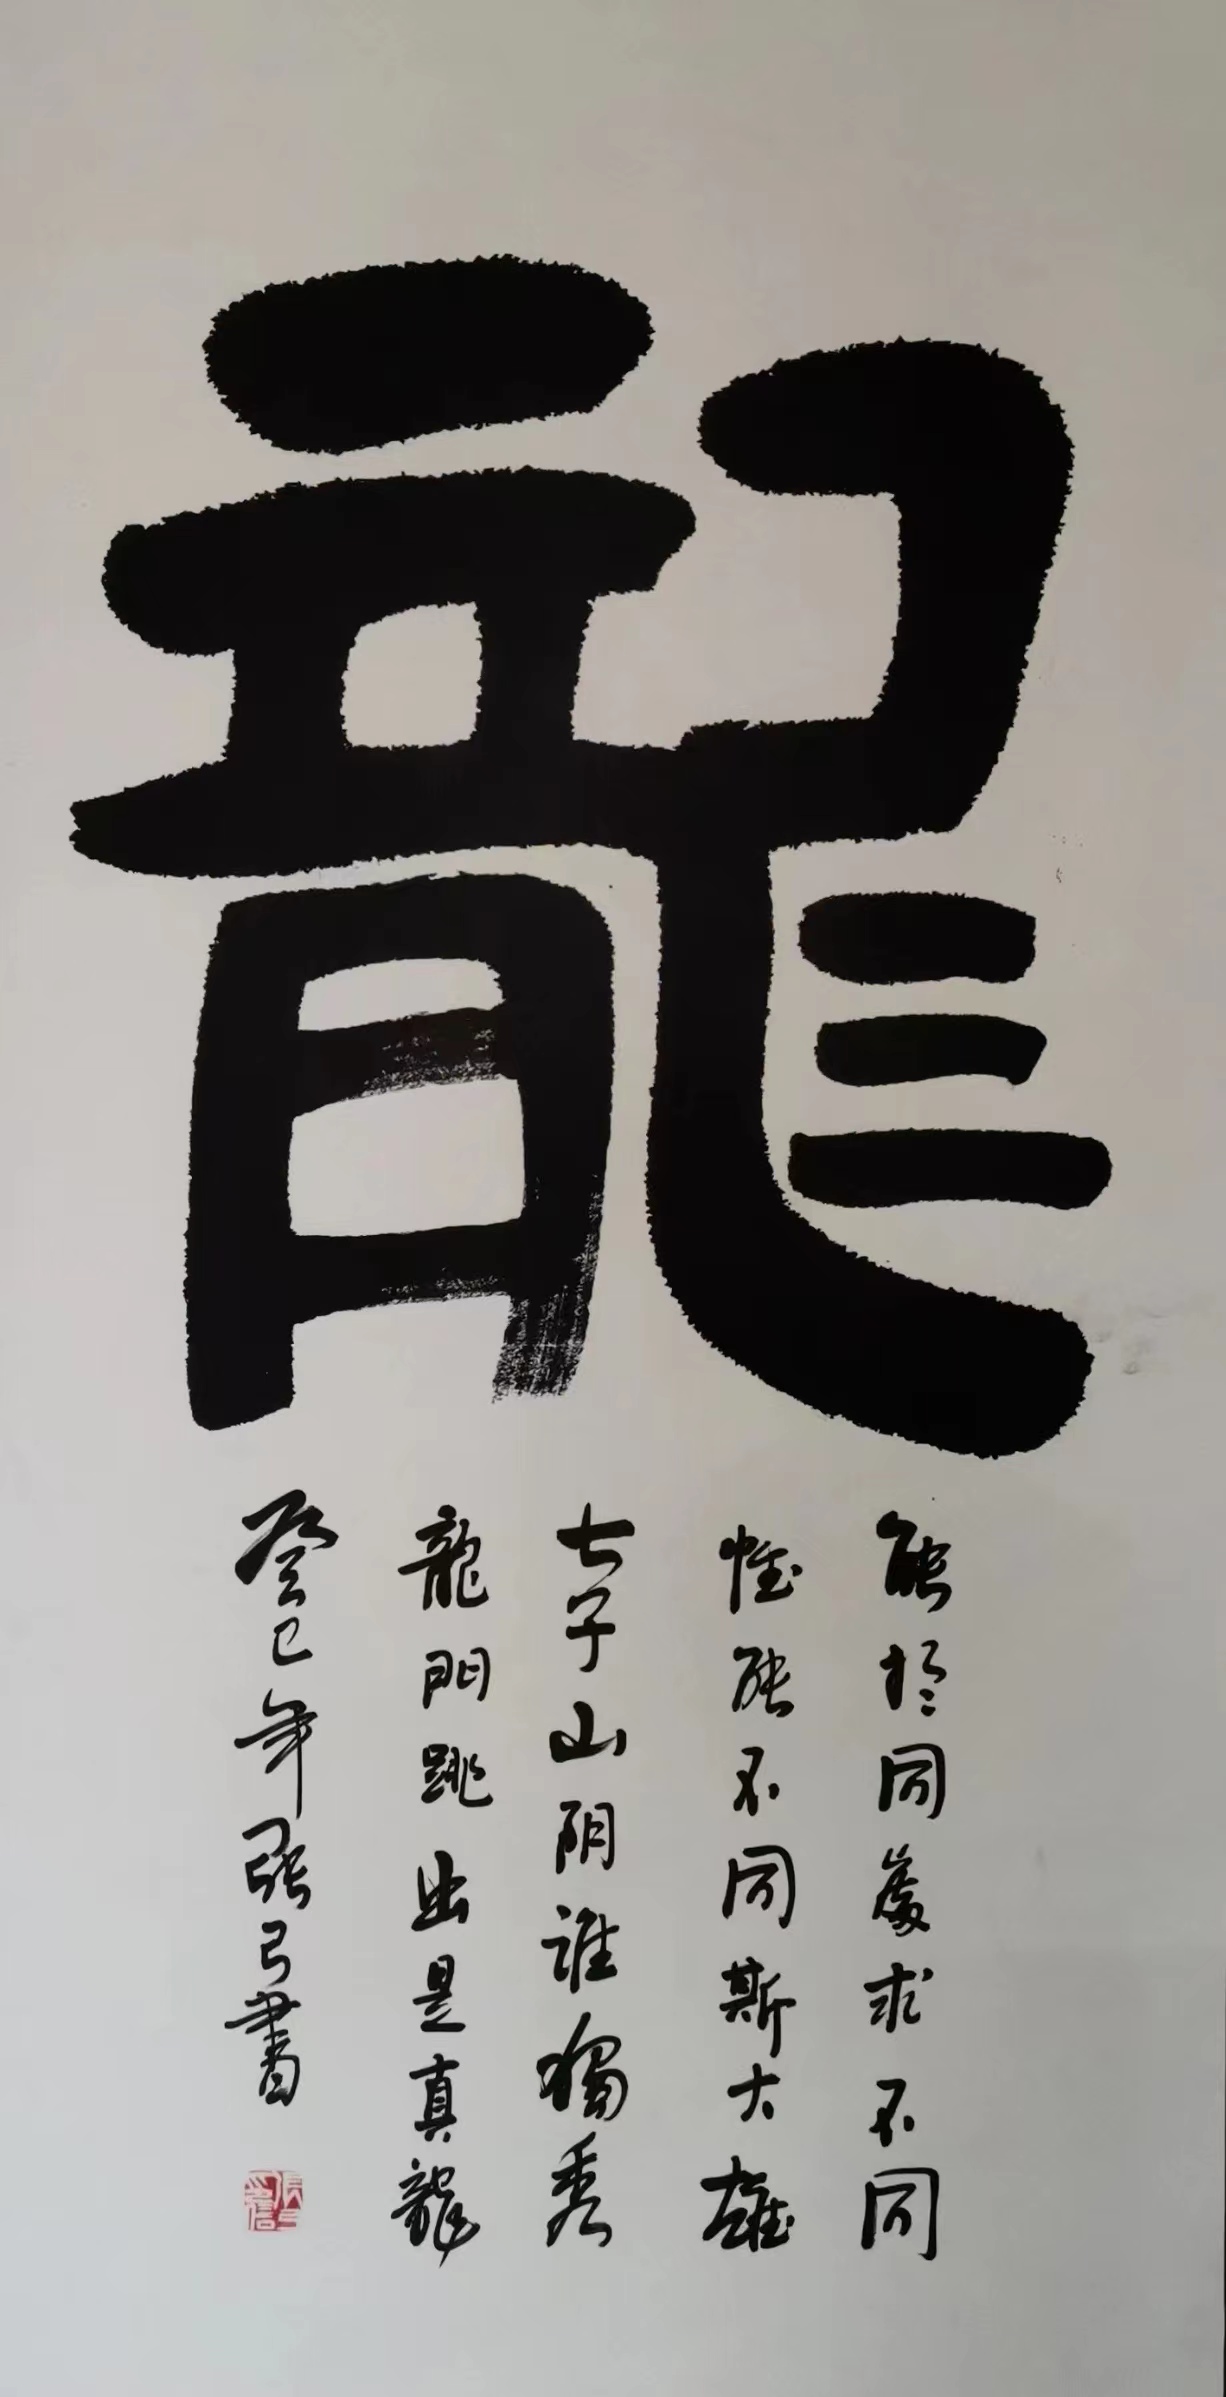 龍
能於同處求不同
惟能不同斯大雄
七子山阴谁獨秀
龍門跳出是真龍
癸巳年張弓書